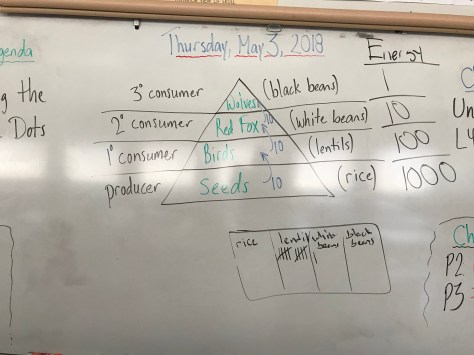 genda
Thursday, May 3, 2018
Energy
3° consumer Wolves (black beans) 1
g the
2° consumer Red Fox 10 (white beans) 10
Dots
Un
1° consumer Birds 10 (lentils) 100
producer Seeds 10 (rice) 1000
rice lentil white beans black beans
Ch
P2
P3